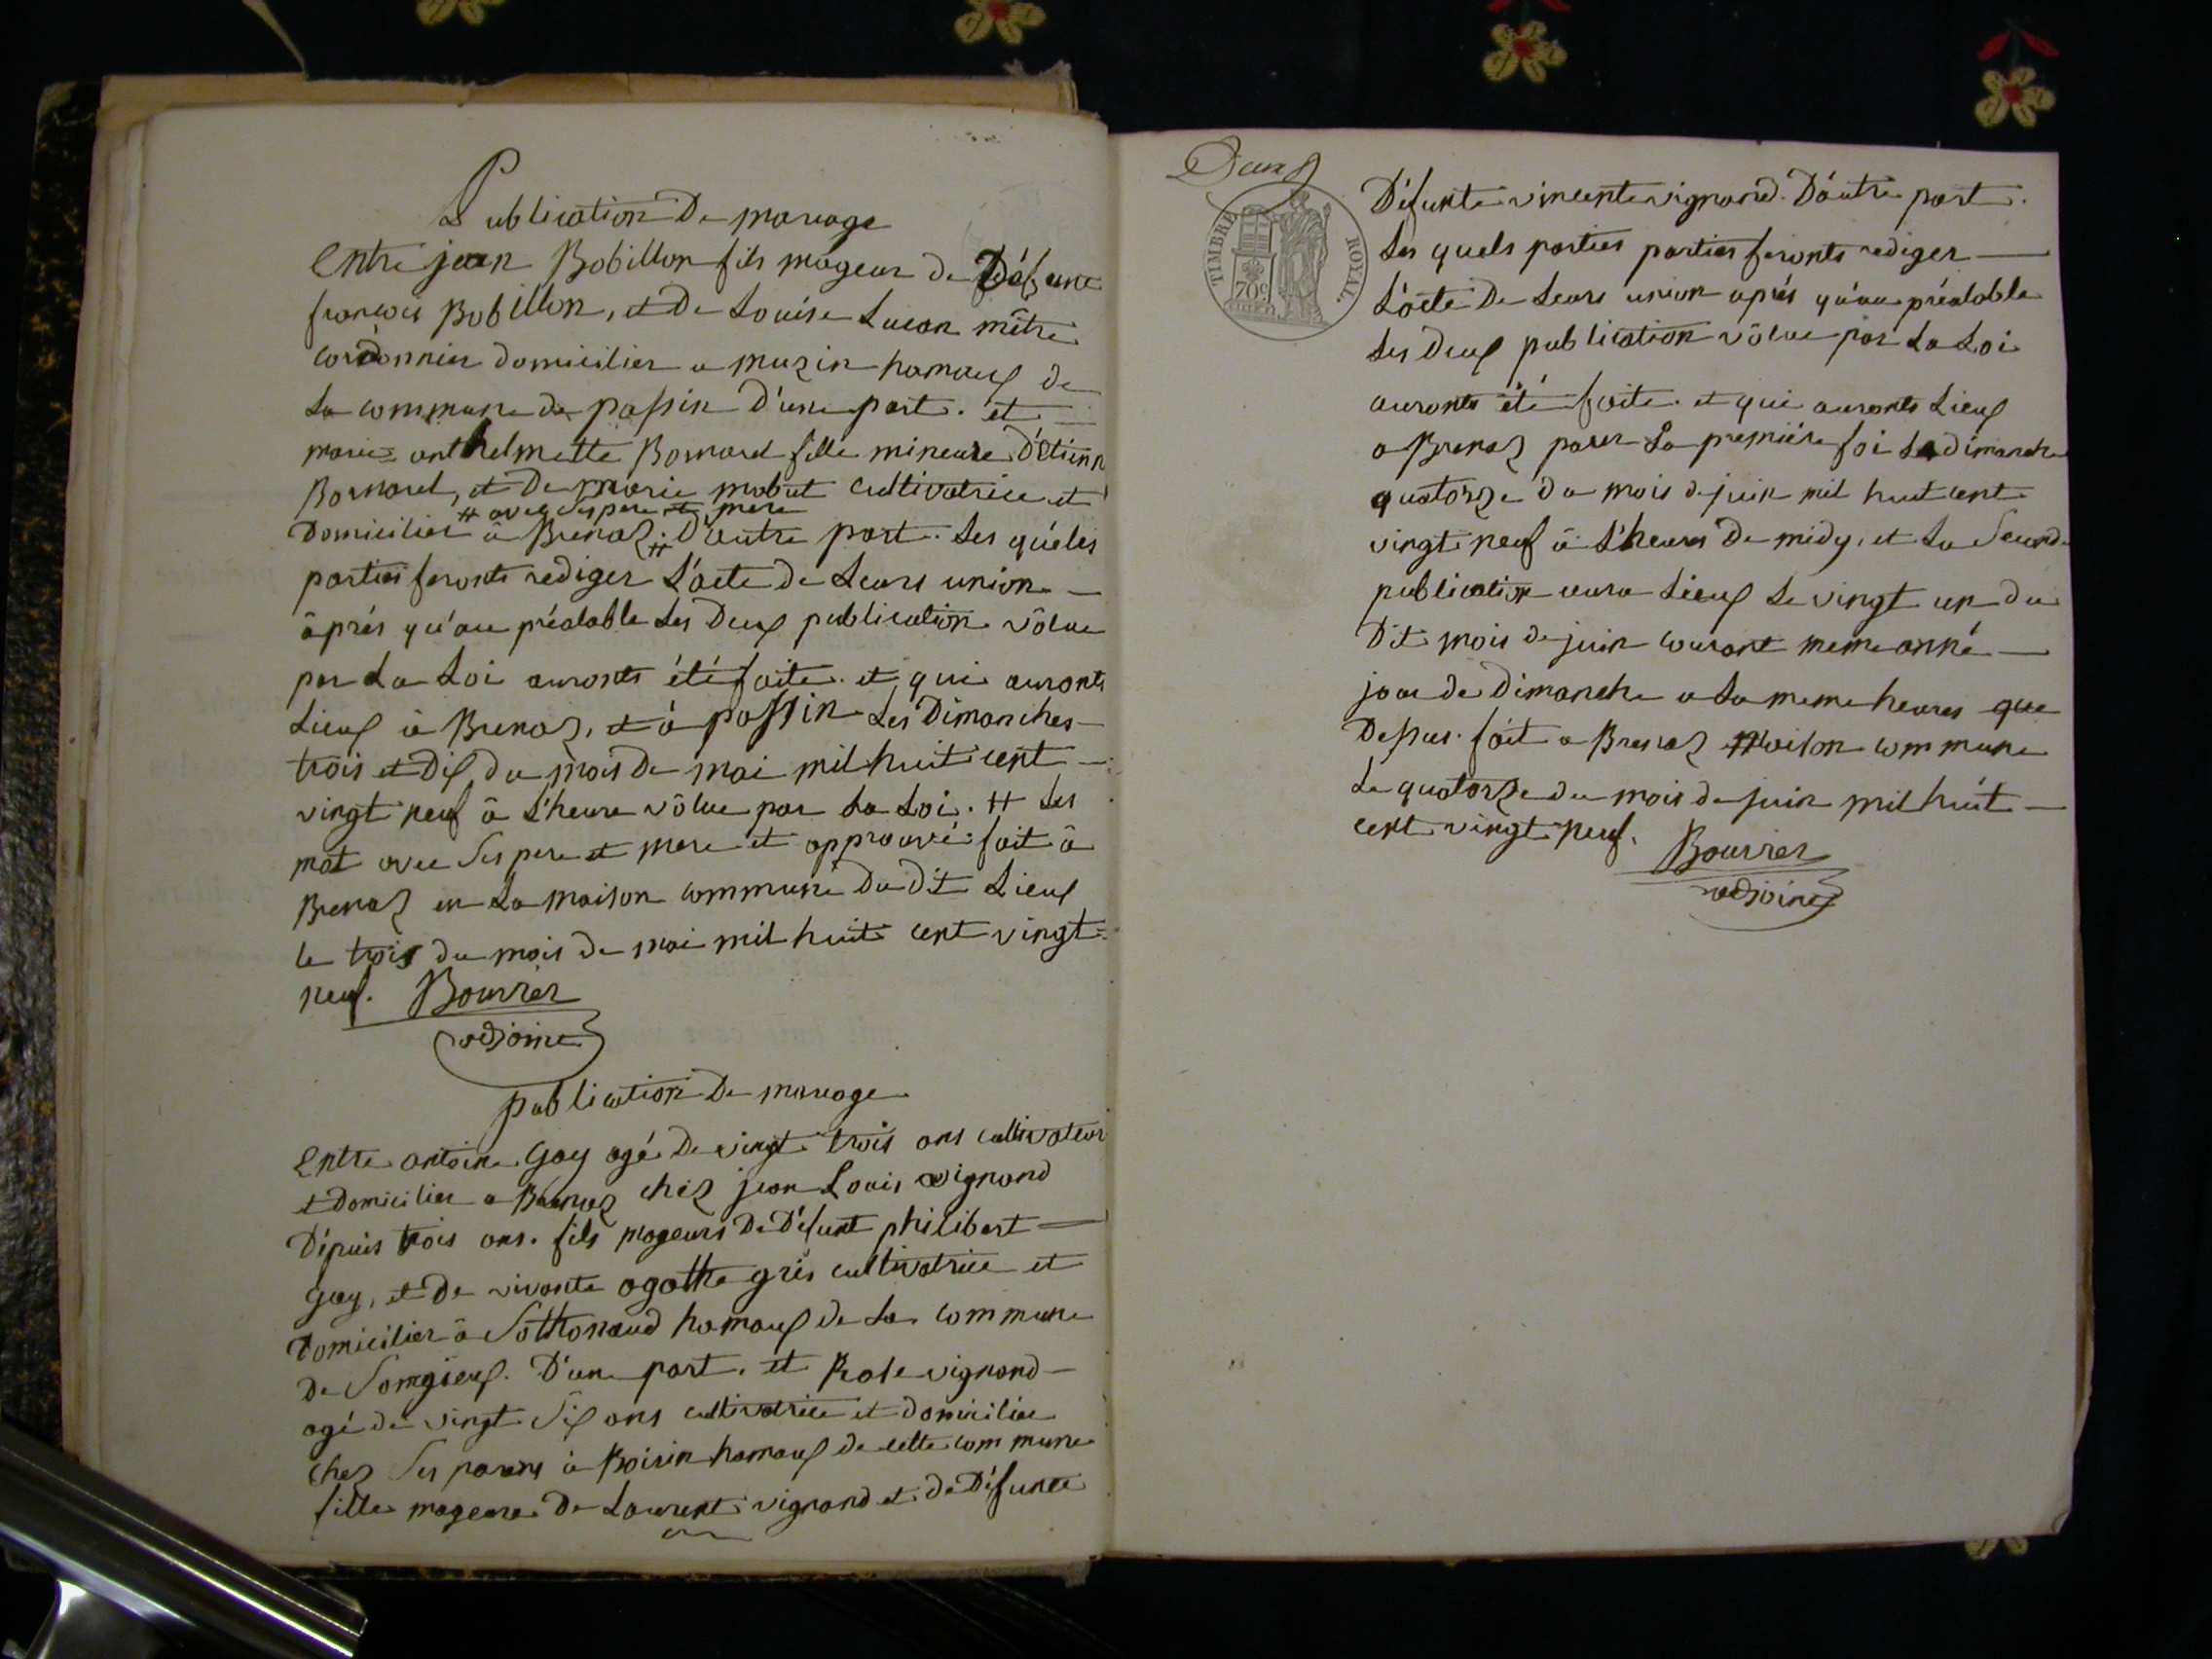 Publication De mariage
Entre jean Bobillon fils mageur de Défunt
francois Bobillon, et De Louise Lucan mêtre
cordonnier domicilier a muzin hamaux de
La commune de passin D'une part. et
marie anthelmette Bornard fille mineure D'étienn
Bornard, et De marie mabut cultivatrice et
# avec ses pere et mere
Domicilier à Brenaz # D'autre part. Les quéles
parties feronts rediger L'acte de Leurs union
âprés qu'au préalable Les Deux publication vôlue
par La Loi auronts été faite. et qui auronts
Lieux à Brenaz, et à passin Les Dimanches
trois et Dix du mois De mai mil huit cent
vingt neuf â L'heure vôlue par La Loi. # Les
mot avec Ses pere et mere et approuvé: fait â
Brenaz en La maison commune Du dit Lieux
le trois du mois de mai mil huit cent vingt
neuf. Bourrer
adjoint
publication De mariage
Entre antoine Gay agé De vingt trois ans cultivateur
et Domicilier a Brenaz chéz jean Louis vignand
Dépuis trois ans. fils mageurs De Défunt philibert
Gay, et De vivante agatthe gris cultivatrice et
Domicilier â Sotthonaud hamaux de La commune
De Somgieux. D'une part. et Rose vignand
agé de vingt Six ans cultivatrice et domicilier
chez Ses parens à Boisin hamaux de cette commune
fille mageure De Laurent vignand et de Défunte
Deux
TIMBRE ROYAL.
70c
Défunte vincente vignand. D'autre part.
Les quels parties parties feronts rediger
L'acte De Leurs union aprés qu'au préalable
Les Deux publication vôlue par La Loi
auronts été faite. et qui auronts Lieux
a Brenaz pour La premiére foi Le dimanche
quatorze du mois de juin mil huit cent
vingt neuf â L'heures De midy, et La Seconde
publication aura Lieux Le vingt un du
Dit mois de juin courant meme anné
jour de Dimanche a La meme heures que
Dessus. fait a Brenaz Maison commune
Le quatorze du mois de juin mil huit
cent vingt neuf. Bourrer
adjoint